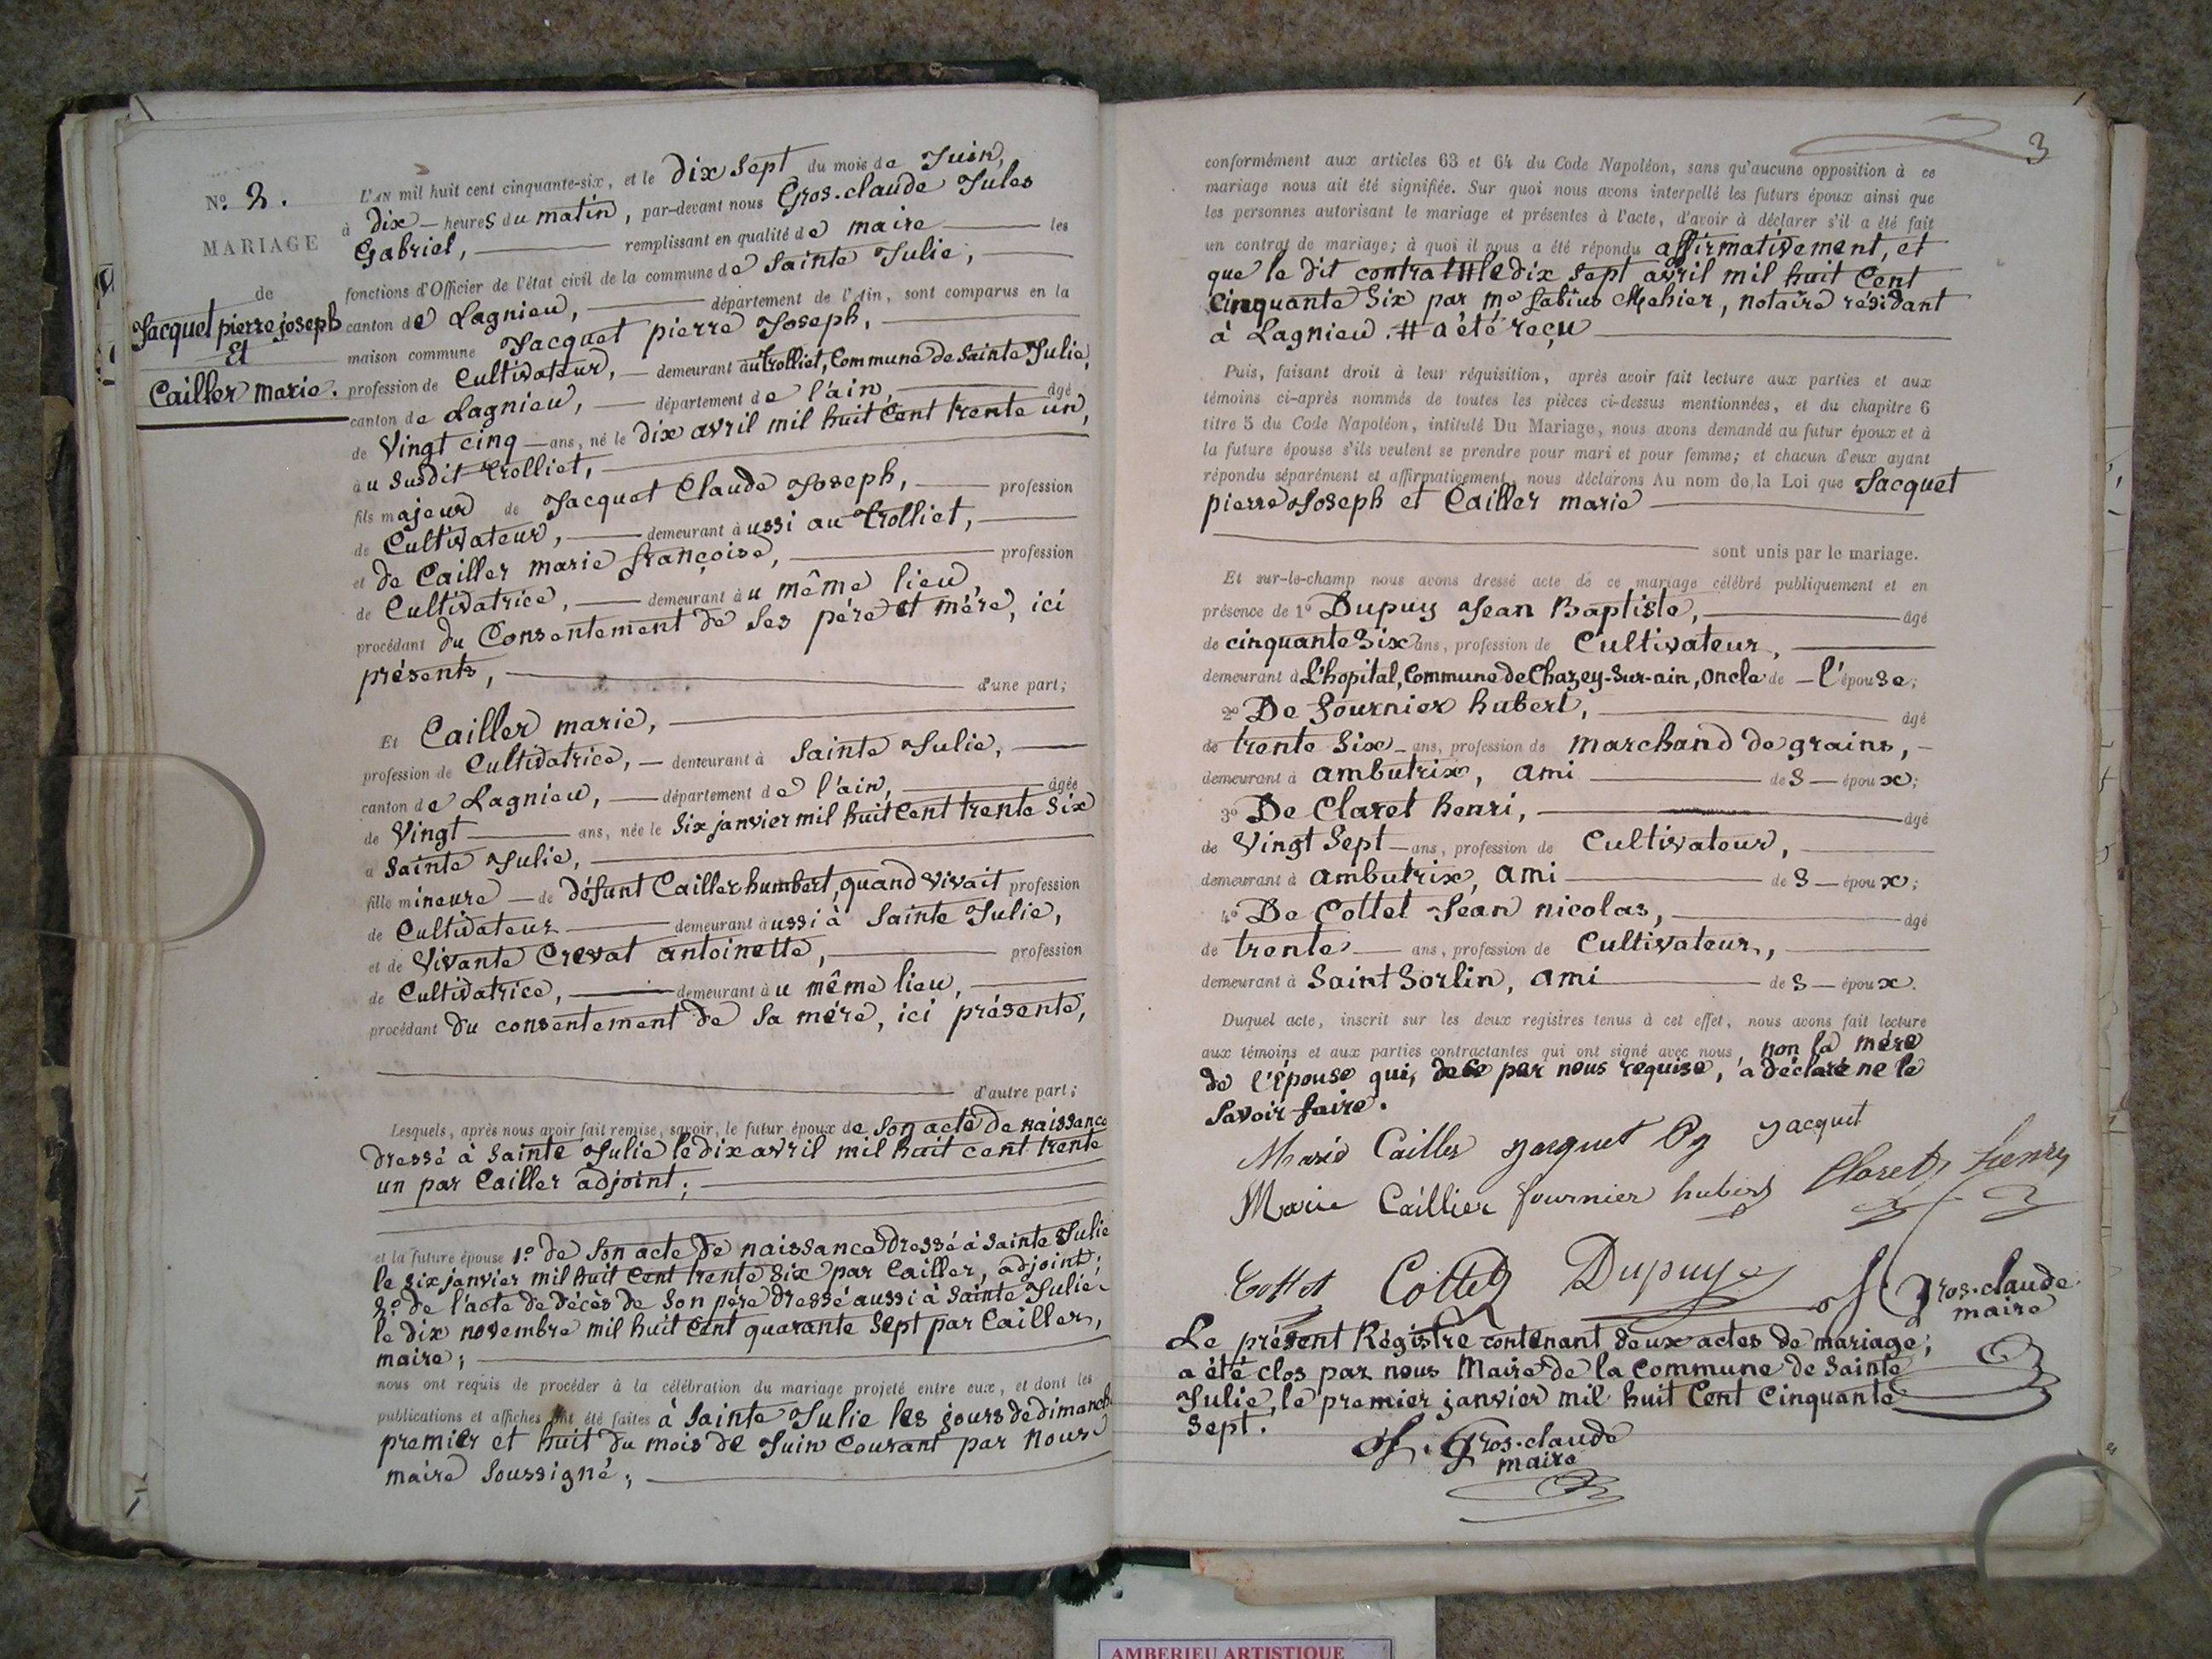 Nº 2.
MARIAGE
de
Jacquet pierre joseph
Et
Cailler marie.
L'AN mil huit cent cinquante-six, et le dix sept du mois de Juin,
à dix heures du matin, par-devant nous Gros-claude Jules
Gabriel, remplissant en qualité de maire les
fonctions d'Officier de l'état civil de la commune de Sainte Julie,
canton de Lagnieu, département de l'Ain, sont comparus en la
maison commune Jacquet pierre Joseph,
profession de Cultivateur, demeurant au trolliet, Commune de Sainte Julie,
canton de Lagnieu, département de l'ain, âgé
de Vingt cinq ans, né le dix avril mil huit Cent trente un,
au susdit trolliet,
fils majeur de Jacquet Claude Joseph, profession
de Cultivateur, demeurant aussi au trolliet,
et de Cailler marie françoise, profession
de Cultivatrice, demeurant au même lieu,
procédant du Consentement de Ses père et mère, ici
présents, d'une part;
Et Cailler marie,
profession de Cultivatrice, demeurant à Sainte Julie,
canton de Lagnieu, département de l'ain, âgée
de Vingt ans, née le Six janvier mil huit Cent trente Six
a Sainte Julie,
fille mineure de défunt Cailler humbert, quand Vivait profession
de Cultivateur demeurant aussi à Sainte Julie,
et de Vivante Crevat antoinette, profession
de Cultivatrice, demeurant au même lieu,
procédant du consentement de Sa mère, ici présente,
d'autre part;
Lesquels, après nous avoir fait remise, savoir, le futur époux de Son acte de naissance
dressé à Sainte Julie le dix avril mil huit cent trente
un par Cailler adjoint;
et la future épouse 1º de Son acte de naissance dressé à Sainte Julie
le six janvier mil huit Cent trente Six par Cailler, adjoint;
2º de l'acte de décès de Son père dressé aussi à Sainte Julie
le dix novembre mil huit Cent quarante Sept par Cailler,
maire;
nous ont requis de procéder à la célébration du mariage projeté entre eux, et dont les
publications et affiches ont été faites à Sainte Julie les jours de dimanche
premier et huit du mois de Juin Courant par Nous
maire Soussigné;
3
conformément aux articles 63 et 64 du Code Napoléon, sans qu'aucune opposition à ce
mariage nous ait été signifiée. Sur quoi nous avons interpellé les futurs époux ainsi que
les personnes autorisant le mariage et présentes à l'acte, d'avoir à déclarer s'il a été fait
un contrat de mariage; à quoi il nous a été répondu affirmativement, et
que le dit contrat # le dix Sept avril mil huit Cent
Cinquante Six par Me Mehier, notaire résidant
à Lagnieu. # a été reçu
Puis, faisant droit à leur réquisition, après avoir fait lecture aux parties et aux
témoins ci-après nommés de toutes les pièces ci-dessus mentionnées, et du chapitre 6
titre 5 du Code Napoléon, intitulé Du Mariage, nous avons demandé au futur époux et à
la future épouse s'ils veulent se prendre pour mari et pour femme; et chacun d'eux ayant
répondu séparément et affirmativement, nous déclarons Au nom de la Loi que Jacquet
pierre Joseph et Cailler marie
sont unis par le mariage.
Et sur-le-champ nous avons dressé acte de ce mariage célébré publiquement et en
présence de 1º Dupuy Jean Baptiste, âgé
de cinquante Six ans, profession de Cultivateur,
demeurant à L'hopital, Commune de Chazey-Sur-ain, Oncle de l'épouse;
2º De fournier hubert, âgé
de trente Six ans, profession de marchand de grains,
demeurant à ambutrix, ami des époux;
3º De Claret henri, âgé
de Vingt Sept ans, profession de Cultivateur,
demeurant à ambutrix, ami des époux;
4º De Cottet Jean nicolas, âgé
de trente ans, profession de Cultivateur,
demeurant à Saint Sorlin, ami des époux.
Duquel acte, inscrit sur les deux registres tenus à cet effet, nous avons fait lecture
aux témoins et aux parties contractantes qui ont signé avec nous, non la mère
de l'Épouse qui, de ce par nous requise, a déclaré ne le
Savoir faire.
Marie Cailler jacquet jacquet
Marie Caillier fournier hubert Claret henry
Cottet Cottet Dupuy J. Gros-claude
maire
Le présent Régistre contenant deux actes de mariage,
a été clos par nous Maire de la Commune de Sainte
Julie, le premier janvier mil huit Cent Cinquante
Sept.
J. Gros-claude
maire
AMBERIEU ARTISTIQUE